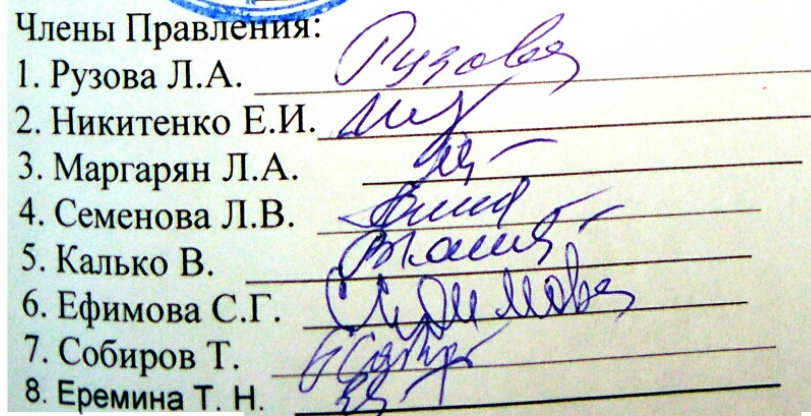 Члены Правления:
1. Рузова Л.А. Рузова
2. Никитенко Е.И.
3. Маргарян Л.А.
4. Семенова Л.В.
5. Калько В.
6. Ефимова С.Г.
7. Собиров Т.
8. Еремина Т. Н.